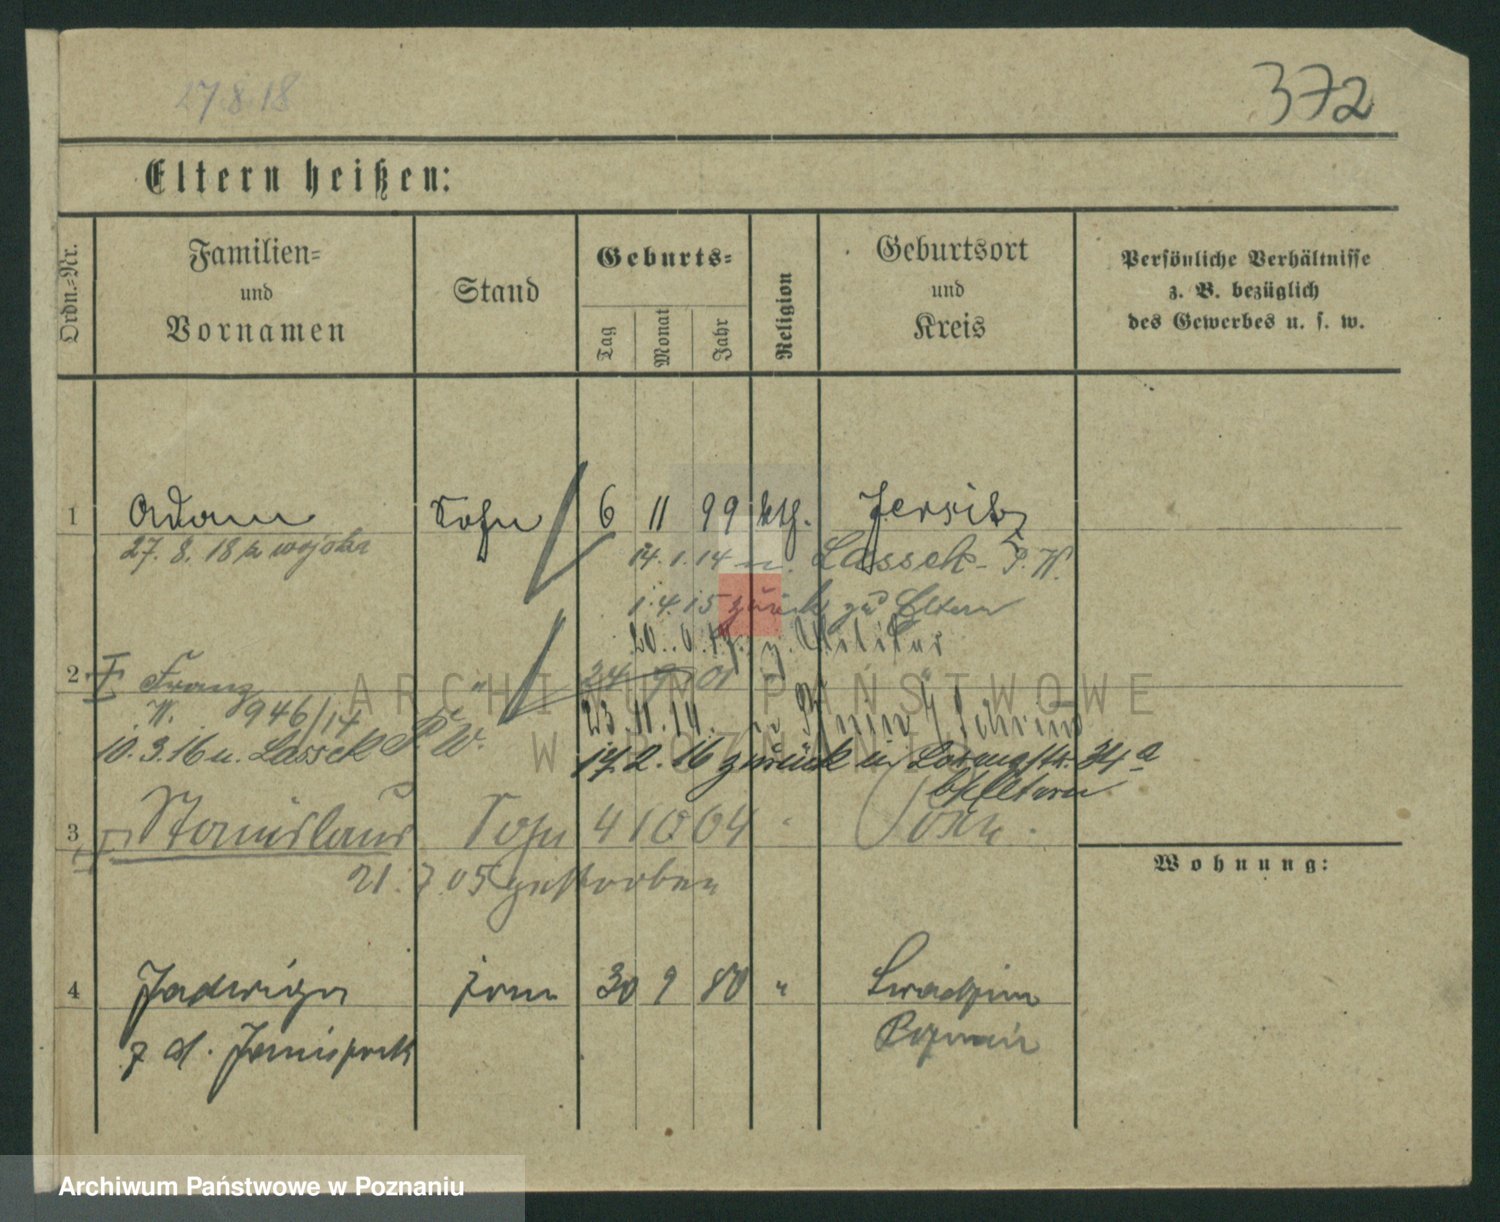 27.8.18
372
Eltern heißen:
Ordn.-Nr.
Familien-
und
Vornamen
Stand
Geburts-
Tag
Monat
Jahr
Religion
Geburtsort
und
Kreis
Persönliche Verhältnisse
z. B. bezüglich
des Gewerbes u. s. w.
1 Adam Sohn 6 11 99 kth. Jersitz
27. 8. 18
14. 1. 14 n. Lassek P. W.
1.4.15 zurück zu Eltern
z. Militär
2 Franz " 24 9 01 "
W. 946/14
23. 11. 14.
10. 3. 16 n. Lassek P. W.
17.2.16 zurück
b/Eltern
3 Stanislaus Sohn 4 10 04
21. 7. 05 gestorben
Wohnung:
4 Jadwiga 30 9 80 "
z d.
ARCHIWUM PAŃSTWOWE
W POZNANIU
Archiwum Państwowe w Poznaniu